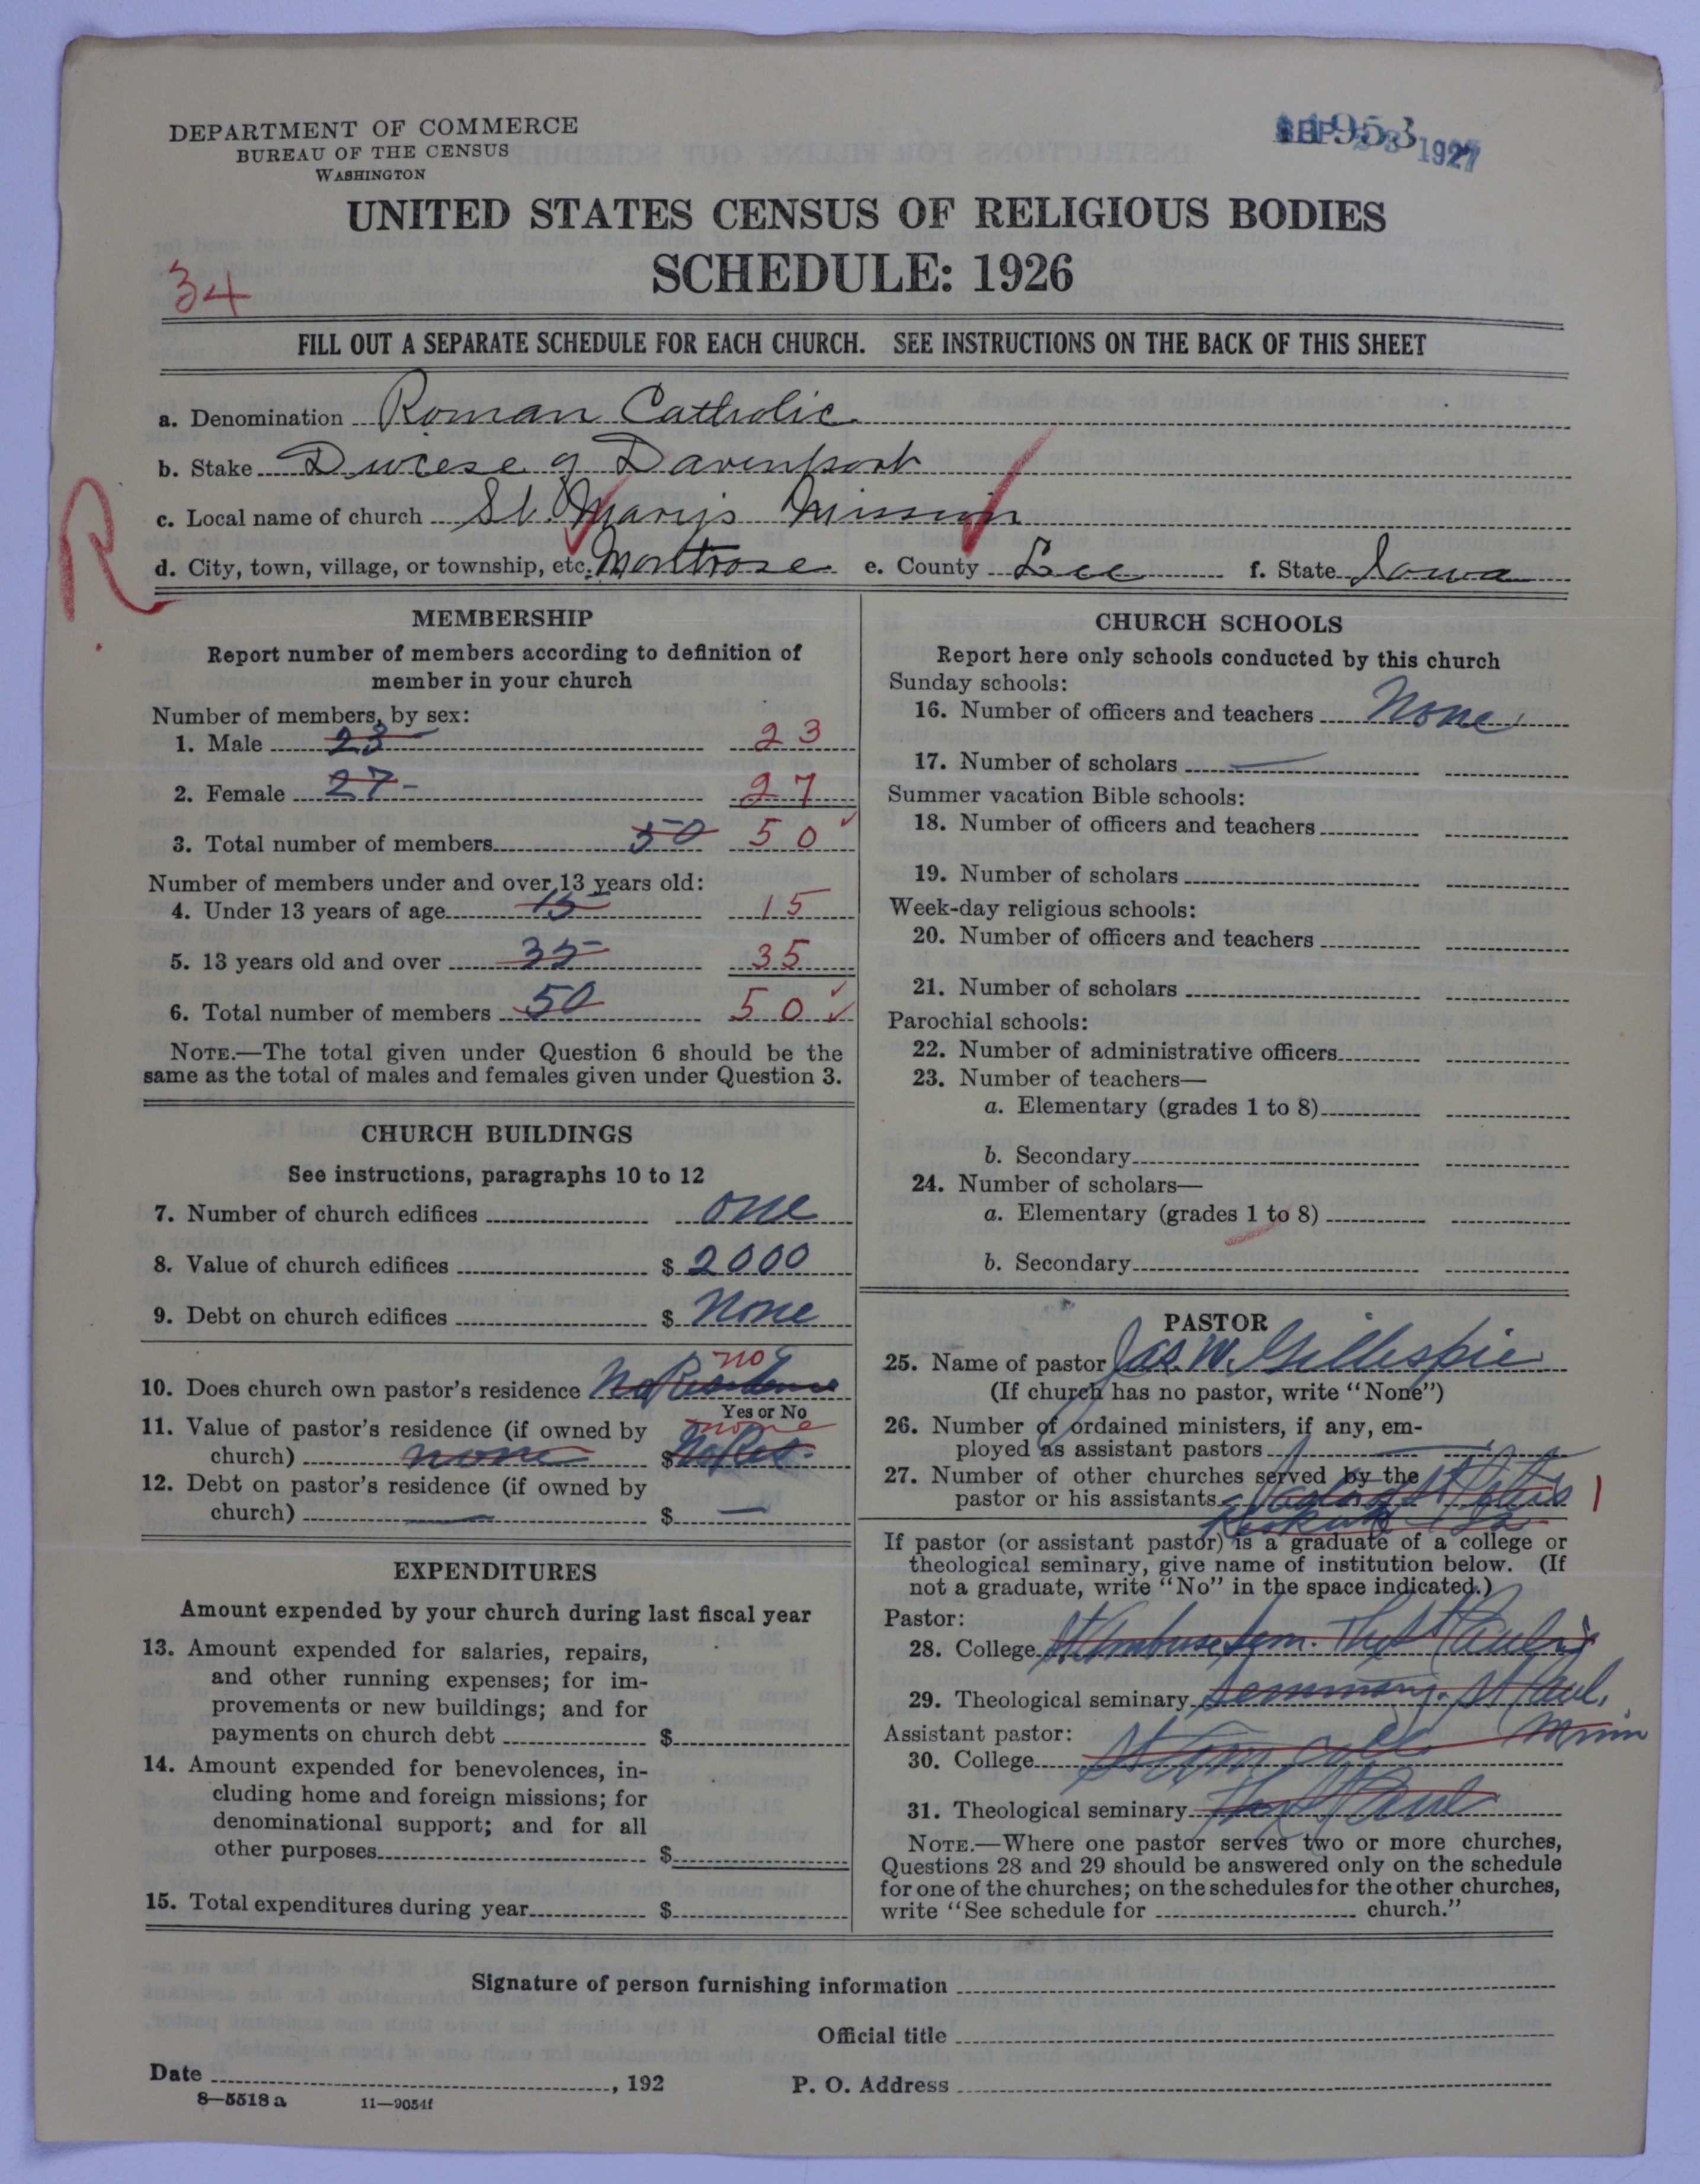 DEPARTMENT OF COMMERCE
BUREAU OF THE CENSUS
WASHINGTON
1927
UNITED STATES CENSUS OF RELIGIOUS BODIES
SCHEDULE: 1926
34
FILL OUT A SEPARATE SCHEDULE FOR EACH CHURCH. SEE INSTRUCTIONS ON THE BACK OF THIS SHEET
a. Denomination Roman Catholic
b. Stake Diocese of Davenport
c. Local name of church St. Mary's Mission
R
d. City, town, village, or township, etc. Montrose e. County Lee f. State Iowa
MEMBERSHIP
Report number of members according to definition of
member in your church
Number of members, by sex:
1. Male 23 23
2. Female 27 27
3. Total number of members 50 50
Number of members under and over 13 years old:
4. Under 13 years of age 15 15
5. 13 years old and over 35 35
6. Total number of members 50 50
NOTE.—The total given under Question 6 should be the
same as the total of males and females given under Question 3.
CHURCH BUILDINGS
See instructions, paragraphs 10 to 12
7. Number of church edifices one
8. Value of church edifices $ 2000
9. Debt on church edifices $ None
no
10. Does church own pastor's residence No Residence
Yes or No
11. Value of pastor's residence (if owned by none
church) none $ No Res.
12. Debt on pastor's residence (if owned by
church) — $ —
EXPENDITURES
Amount expended by your church during last fiscal year
13. Amount expended for salaries, repairs,
and other running expenses; for im-
provements or new buildings; and for
payments on church debt $
14. Amount expended for benevolences, in-
cluding home and foreign missions; for
denominational support; and for all
other purposes $
15. Total expenditures during year $
CHURCH SCHOOLS
Report here only schools conducted by this church
Sunday schools:
16. Number of officers and teachers None
17. Number of scholars —
Summer vacation Bible schools:
18. Number of officers and teachers
19. Number of scholars
Week-day religious schools:
20. Number of officers and teachers
21. Number of scholars
Parochial schools:
22. Number of administrative officers
23. Number of teachers—
a. Elementary (grades 1 to 8)
b. Secondary
24. Number of scholars—
a. Elementary (grades 1 to 8)
b. Secondary
PASTOR
25. Name of pastor Jas. W. Gillespie
(If church has no pastor, write "None")
26. Number of ordained ministers, if any, em-
ployed as assistant pastors —
27. Number of other churches served by the
pastor or his assistants Pastor of St Peters 1
Keokuk Ia
If pastor (or assistant pastor) is a graduate of a college or
theological seminary, give name of institution below. (If
not a graduate, write "No" in the space indicated.)
Pastor:
28. College St Ambrose Sem. The St Paul
29. Theological seminary Seminary. St Paul,
Minn
Assistant pastor:
30. College
31. Theological seminary St Paul
NOTE.—Where one pastor serves two or more churches,
Questions 28 and 29 should be answered only on the schedule
for one of the churches; on the schedules for the other churches,
write "See schedule for church."
Signature of person furnishing information
Official title
Date , 192 P. O. Address
8—5518 a 11—9054f